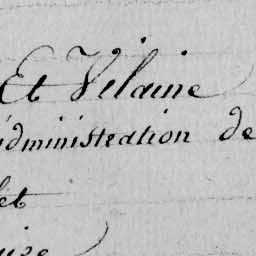 Et Vilaine
administration de
let